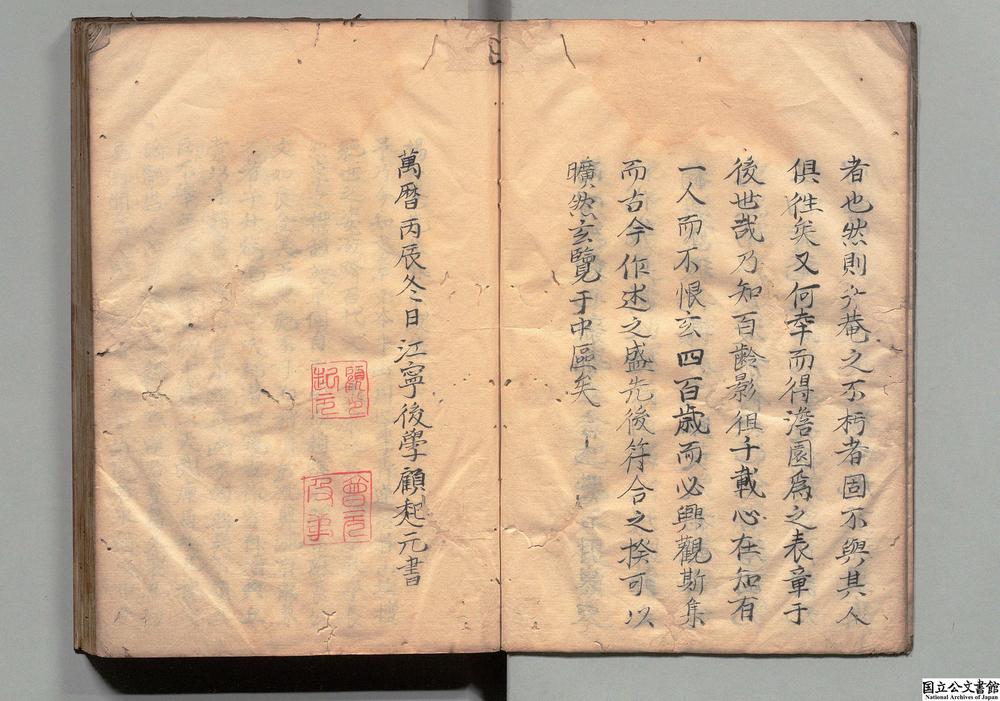 者也然則弘菴之不朽者固不與其人
俱徃矣又何幸而得澹園爲之表章于
後世哉乃知百齡影徂千載心在知有
一人而不恨玄四百歳而必興觀斯集
而古今作述之盛先後符合之揆可以
曠然玄覽于中區矣
萬曆丙辰冬日江寧後學顧起元書
顧印
起元
會元
及弟
国立公文書館
National Archives of Japan